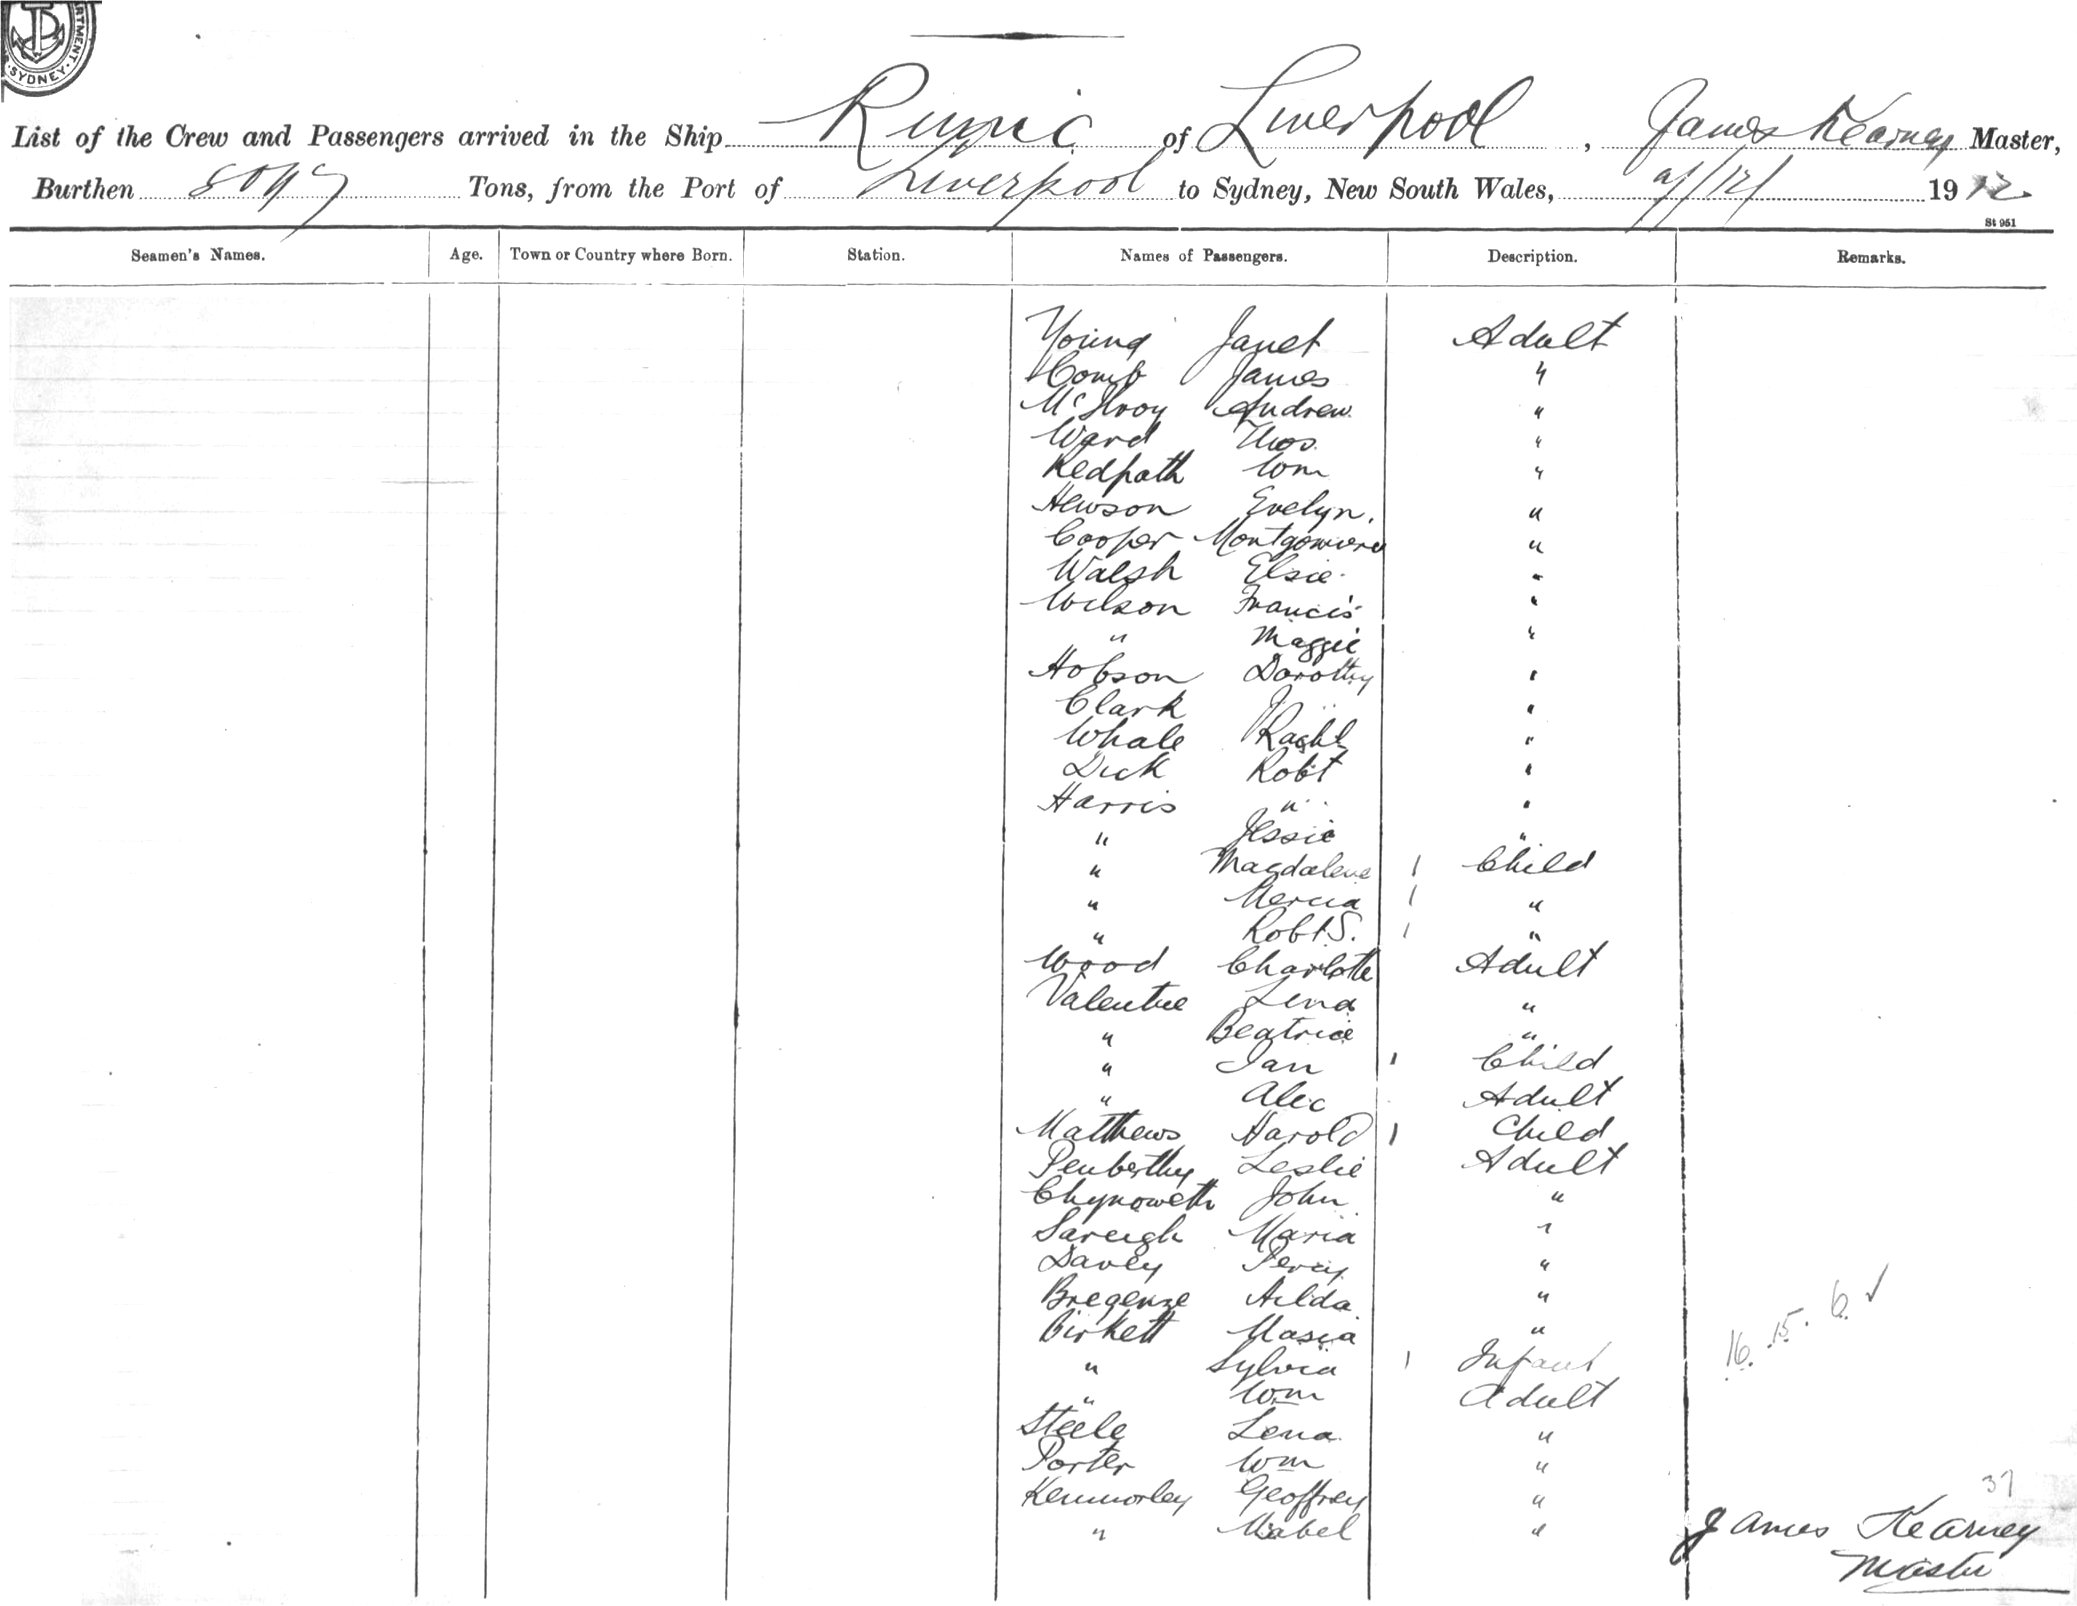 RTMENT · SYDNEY ·
List of the Crew and Passengers arrived in the Ship Runic of Liverpool, James Kearney Master,
Burthen Tons, from the Port of Liverpool to Sydney, New South Wales, 1912
St 951
Seamen's Names. Age. Town or Country where Born. Station. Names of Passengers. Description. Remarks.
Young Janet Adult
Comb James "
McIlroy Andrew "
Ward Thos. "
Redpath Wm "
Hewson Evelyn. "
Cooper "
Walsh Elsie "
Wilson Francis "
" Maggie "
Hobson Dorothy "
Clark J "
Whale Rachl "
Dick Robt "
Harris " "
" Jessie "
" Magdalene 1 Child
" Mercia 1 "
" Robt S. 1 "
Wood Charlotte Adult
Valentine Lena "
" Beatrice "
" Ian 1 Child
" Alec Adult
Matthews Harold 1 Child
Penberthy Leslie Adult
Chynoweth John "
Maria "
Davey Percy "
Bregenze "
Birkett "
" Sylvia 1 Infant
" Wm Adult
Steele Lena "
Porter Wm "
Geoffrey "
" Mabel "
16. 15. 6 ✓
37
James Kearney
Master